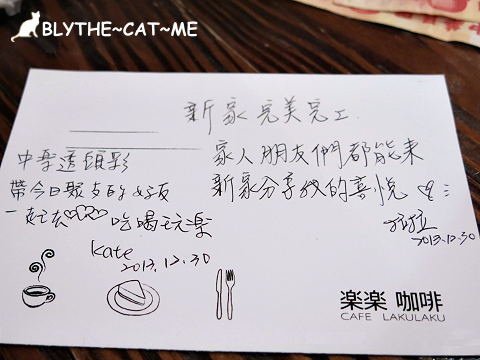 BLYTHE~CAT~ME
新家完美完工
家人朋友們都能來
新家分享我的喜悅
拉拉
2013.12.30
帶今日聚
一起去 吃喝玩楽
Kate
2013.12.30
楽楽 咖啡
CAFE LAKULAKU